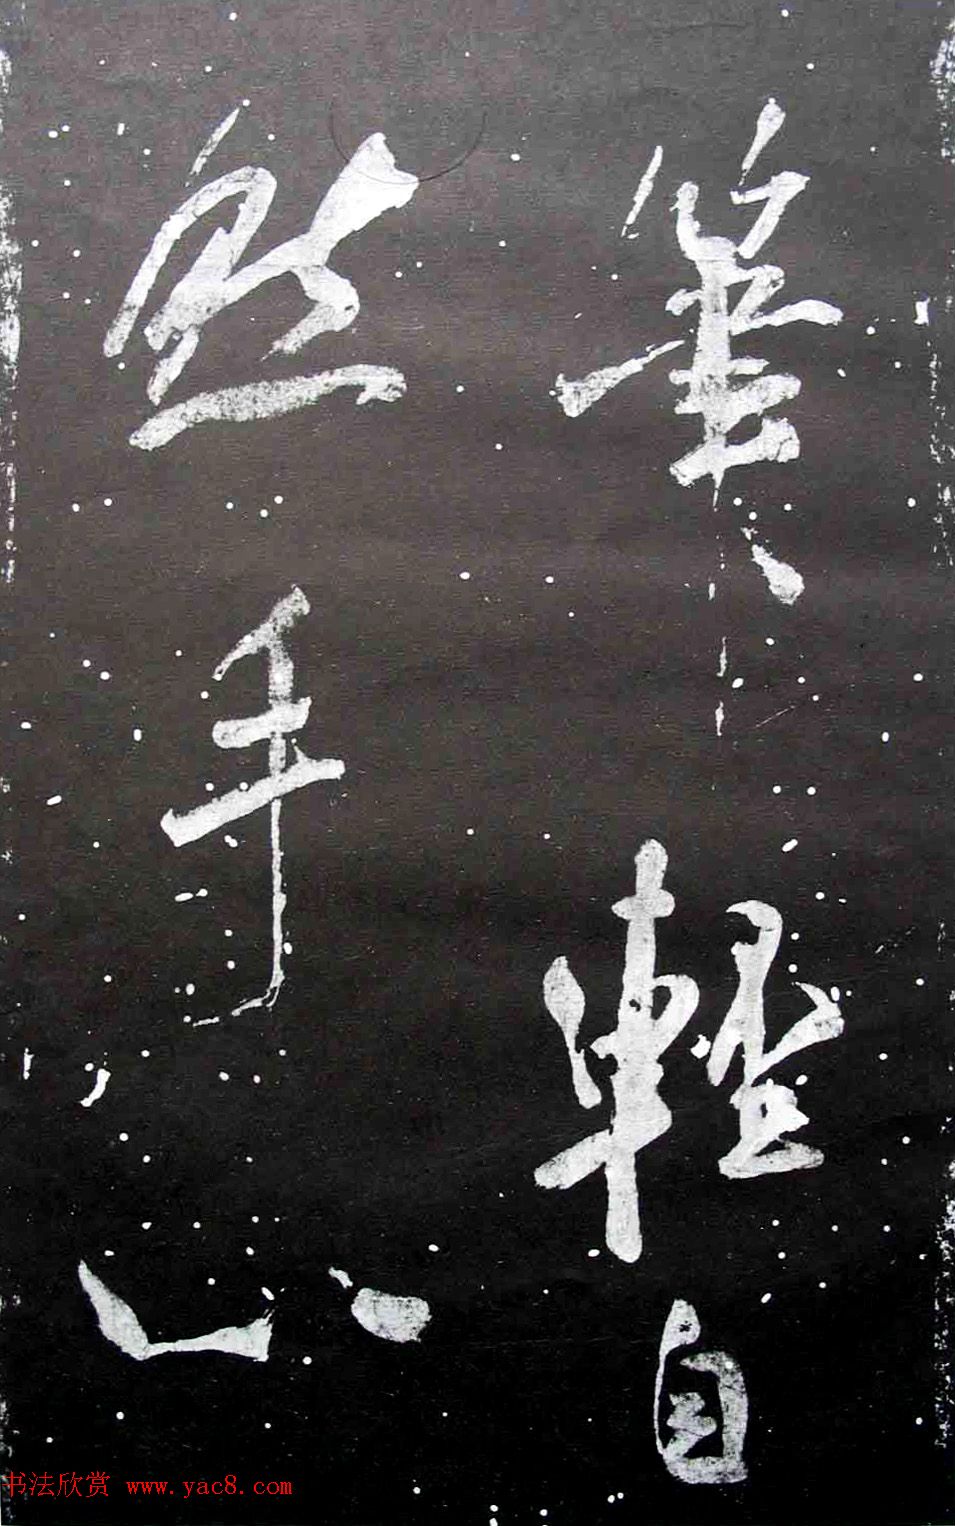 筆輕自
然手心
书法欣赏 www.yac8.com